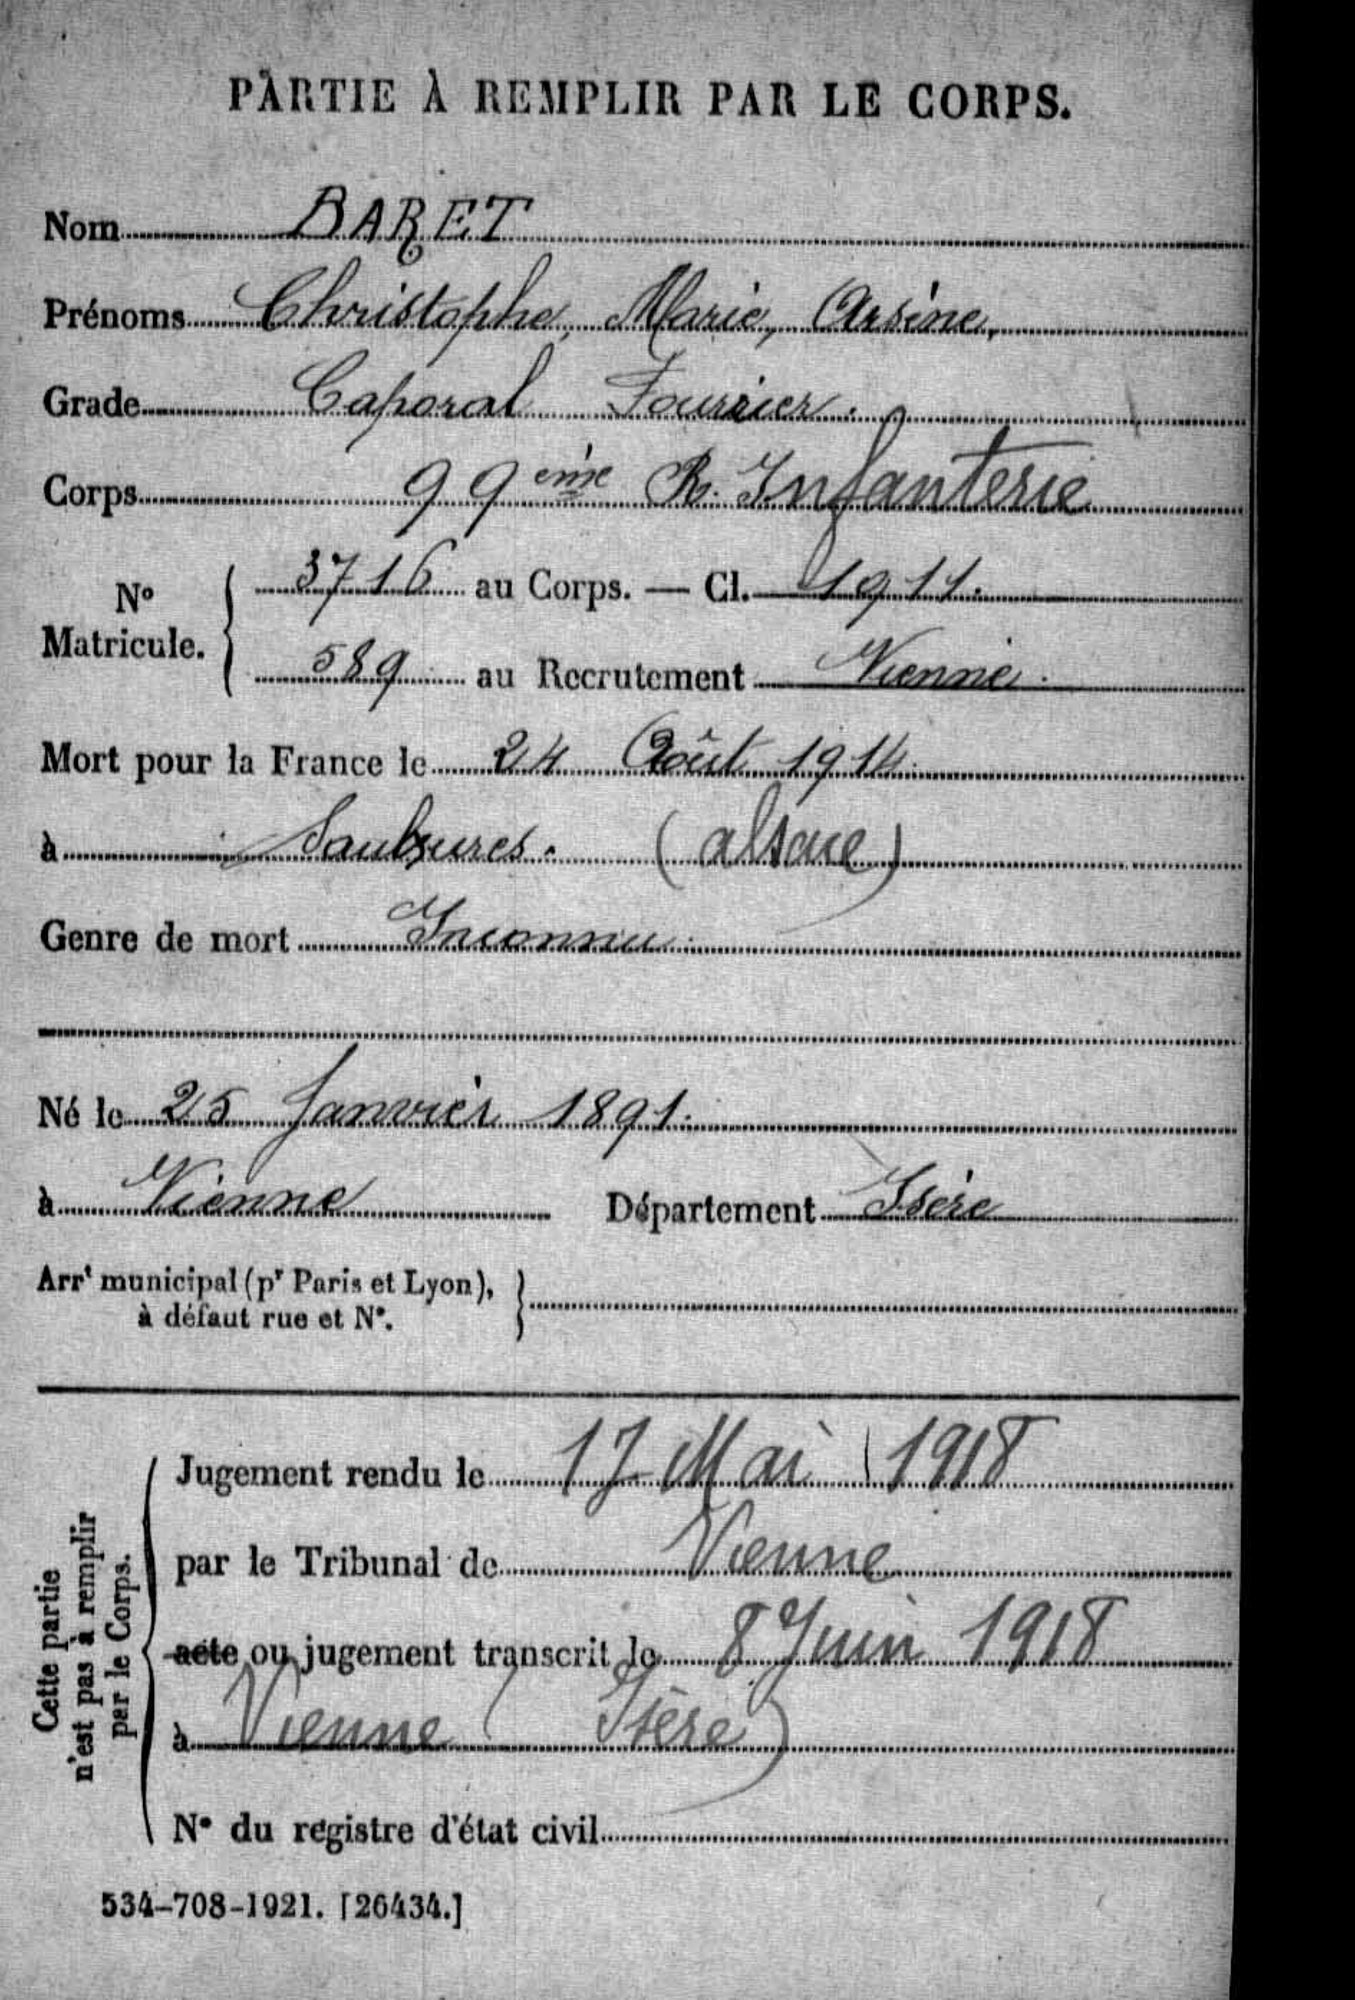 PARTIE À REMPLIR PAR LE CORPS.
Nom BARET
Prénoms Christophe, Marie, Arsène,
Grade Caporal Fourrier.
Corps 99ème R. Infanterie
N° Matricule. 3716 au Corps. — Cl. 1911.
589 au Recrutement Vienne.
Mort pour la France le 24 Août 1914.
à Saulxures. (alsace)
Genre de mort Inconnu.
Né le 25 Janvier 1891.
à Vienne Département Isère
Arrt municipal (pr Paris et Lyon),
à défaut rue et N°.
Cette partie
n'est pas à remplir
par le Corps.
Jugement rendu le 17 Mai 1918
par le Tribunal de Vienne
acte ou jugement transcrit le 8 Juin 1918
à Vienne (Isère)
N° du registre d'état civil
534-708-1921. [26434.]